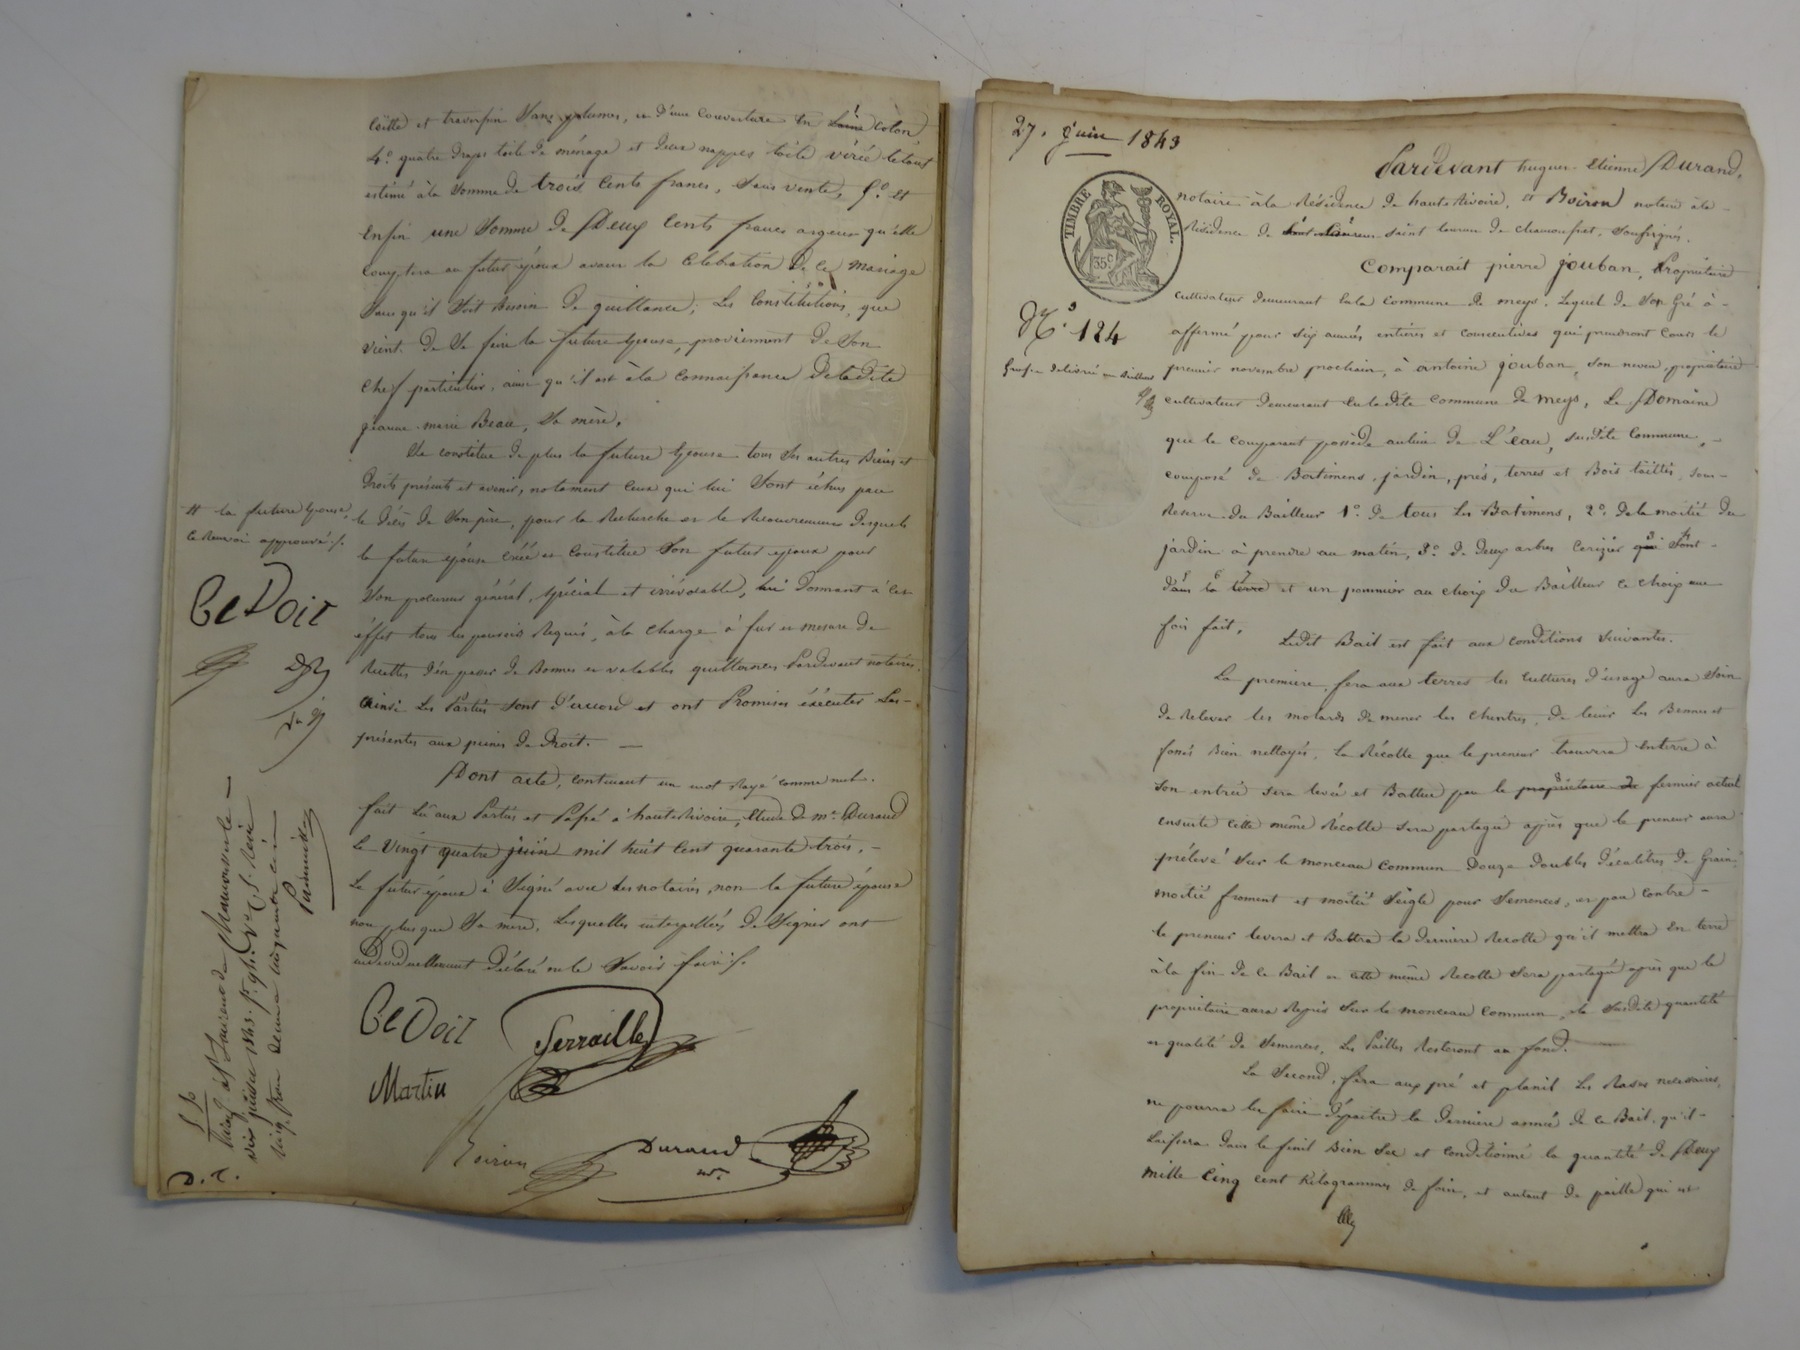 toille et traverpin sans plumes, et d'une couverture en laine coton
4º quatre draps toile de ménage et deux nappes toile virée le tout
estimé à la somme de trois cents francs, sans vente, 5º et
Enfin une somme de Deux cents francs argent qu'elle
comptera au futur époux avant la célébration de ce mariage
sans qu'il soit besoin de quittance; Les Constitutions, que
vient de se faire la future épouse, proviennent de son
chef particulier, ainsi qu'il est à la connaissance de ladite
jeanne marie Beau, sa mère.
Se constitue de plus la future épouse tous ses autres Biens et
Droits présents et avenir, notament ceux qui lui sont échus par
le décès de son père, pour la Recherche et le Recouvrement desquels
la future épouse créé et constitue son futur époux pour
son procureur général, spécial et irrévocable, lui donnant à cet
éffet tous les pouvoirs Requis, à la charge à fur et mesure de
Recettes d'en passer de Bonnes et valables quittances Pardevant notaires.
Ainsi Les Parties sont d'accord et ont Promises éxécuter Les
présentes aux peines de Droit. —
Dont acte, contenant un mot Rayé comme nul.
fait Lû aux Parties et Passé à hauteRivoire, Etude de me. Durand
le Vingt quatre juin mil huit cent quarante trois. -
Le futur époux à Signé avec les notaires, non la future épouse
non plus que Sa mère, Lesquelles interpellées de Signer ont
individuellement Déclaré ne le Savoir faire ./.
# la future épouse,
Ce Renvoi approuvé ./.
Martin
Serraille
Boiron
Durand
nre.
D. C.
27. juin 1843
TIMBRE ROYAL.
35c
Nº. 124
Grosse délivrée au Bailleur
Pardevant hugues Etienne Durand,
notaire à la Résidence de hauteRivoire, et Boiron notaire à la
Résidence de saint laurent de chamousset, soussignés.
Comparaît pierre jouban, Propriétaire
cultivateur demeurant en la commune de meys. Lequel de Son Gré à
affermé pour Six années entières et consecutives qui prendront cours le
premier novembre prochain, à antoine jouban, son neveu, propriétaire
cultivateur demeurant en ladite commune de meys, Le Domaine
que le comparant possède au lieu de L'eau, susdite commune, -
composé de Batimens, jardin, prés, terres et Bois taillis, sous
Reserve du Bailleur 1º. de tous Les Batimens, 2º. de la moitié du
jardin à prendre au matin, 3º. de Deux arbres Cerizier qui sont -
dans la terre et un pommier au choix du Bailleur ce choix une
fois fait.
Ledit Bail est fait aux conditions Suivantes.
La première, fera aux terres les cultures d'usage aura Soin
de Relever les motards de mener les chintres, de tenir Les Bennes et
fossés Bien nettoyés, La Récolte que le preneur trouvera Enterre à
Son entrée sera levée et Battue par le propriétaire de fermier actuel
ensuite cette même Récolte sera partagée après que le preneur aura
prélevé Sur le monceau commun Douze doubles décalitres de Grain,
moitié froment et moitié Seigle pour Semences, et par contre -
le preneur levera et Battra la dernière Recolte qu'il mettra En terre
à la fin de ce Bail et cette même Recolte Sera partagée après que le
propriétaire aura Repris Sur le monceau Commun, la Susdite quantité
et qualité de Semences, Les Pailles Resteront au fond.
La Second, fera aux pré et planil Les Rases necessaires,
ne pourra les faire dépaitre la dernière année de ce Bail, qu'il -
Laissera dans le fenil Bien Sec et conditionné la quantité de Deux
mille cinq cent Kilogrammes de foin, et autant de paille qui est